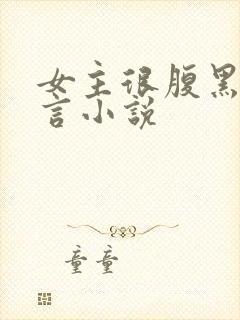 女主很腹黑
言小说
童童